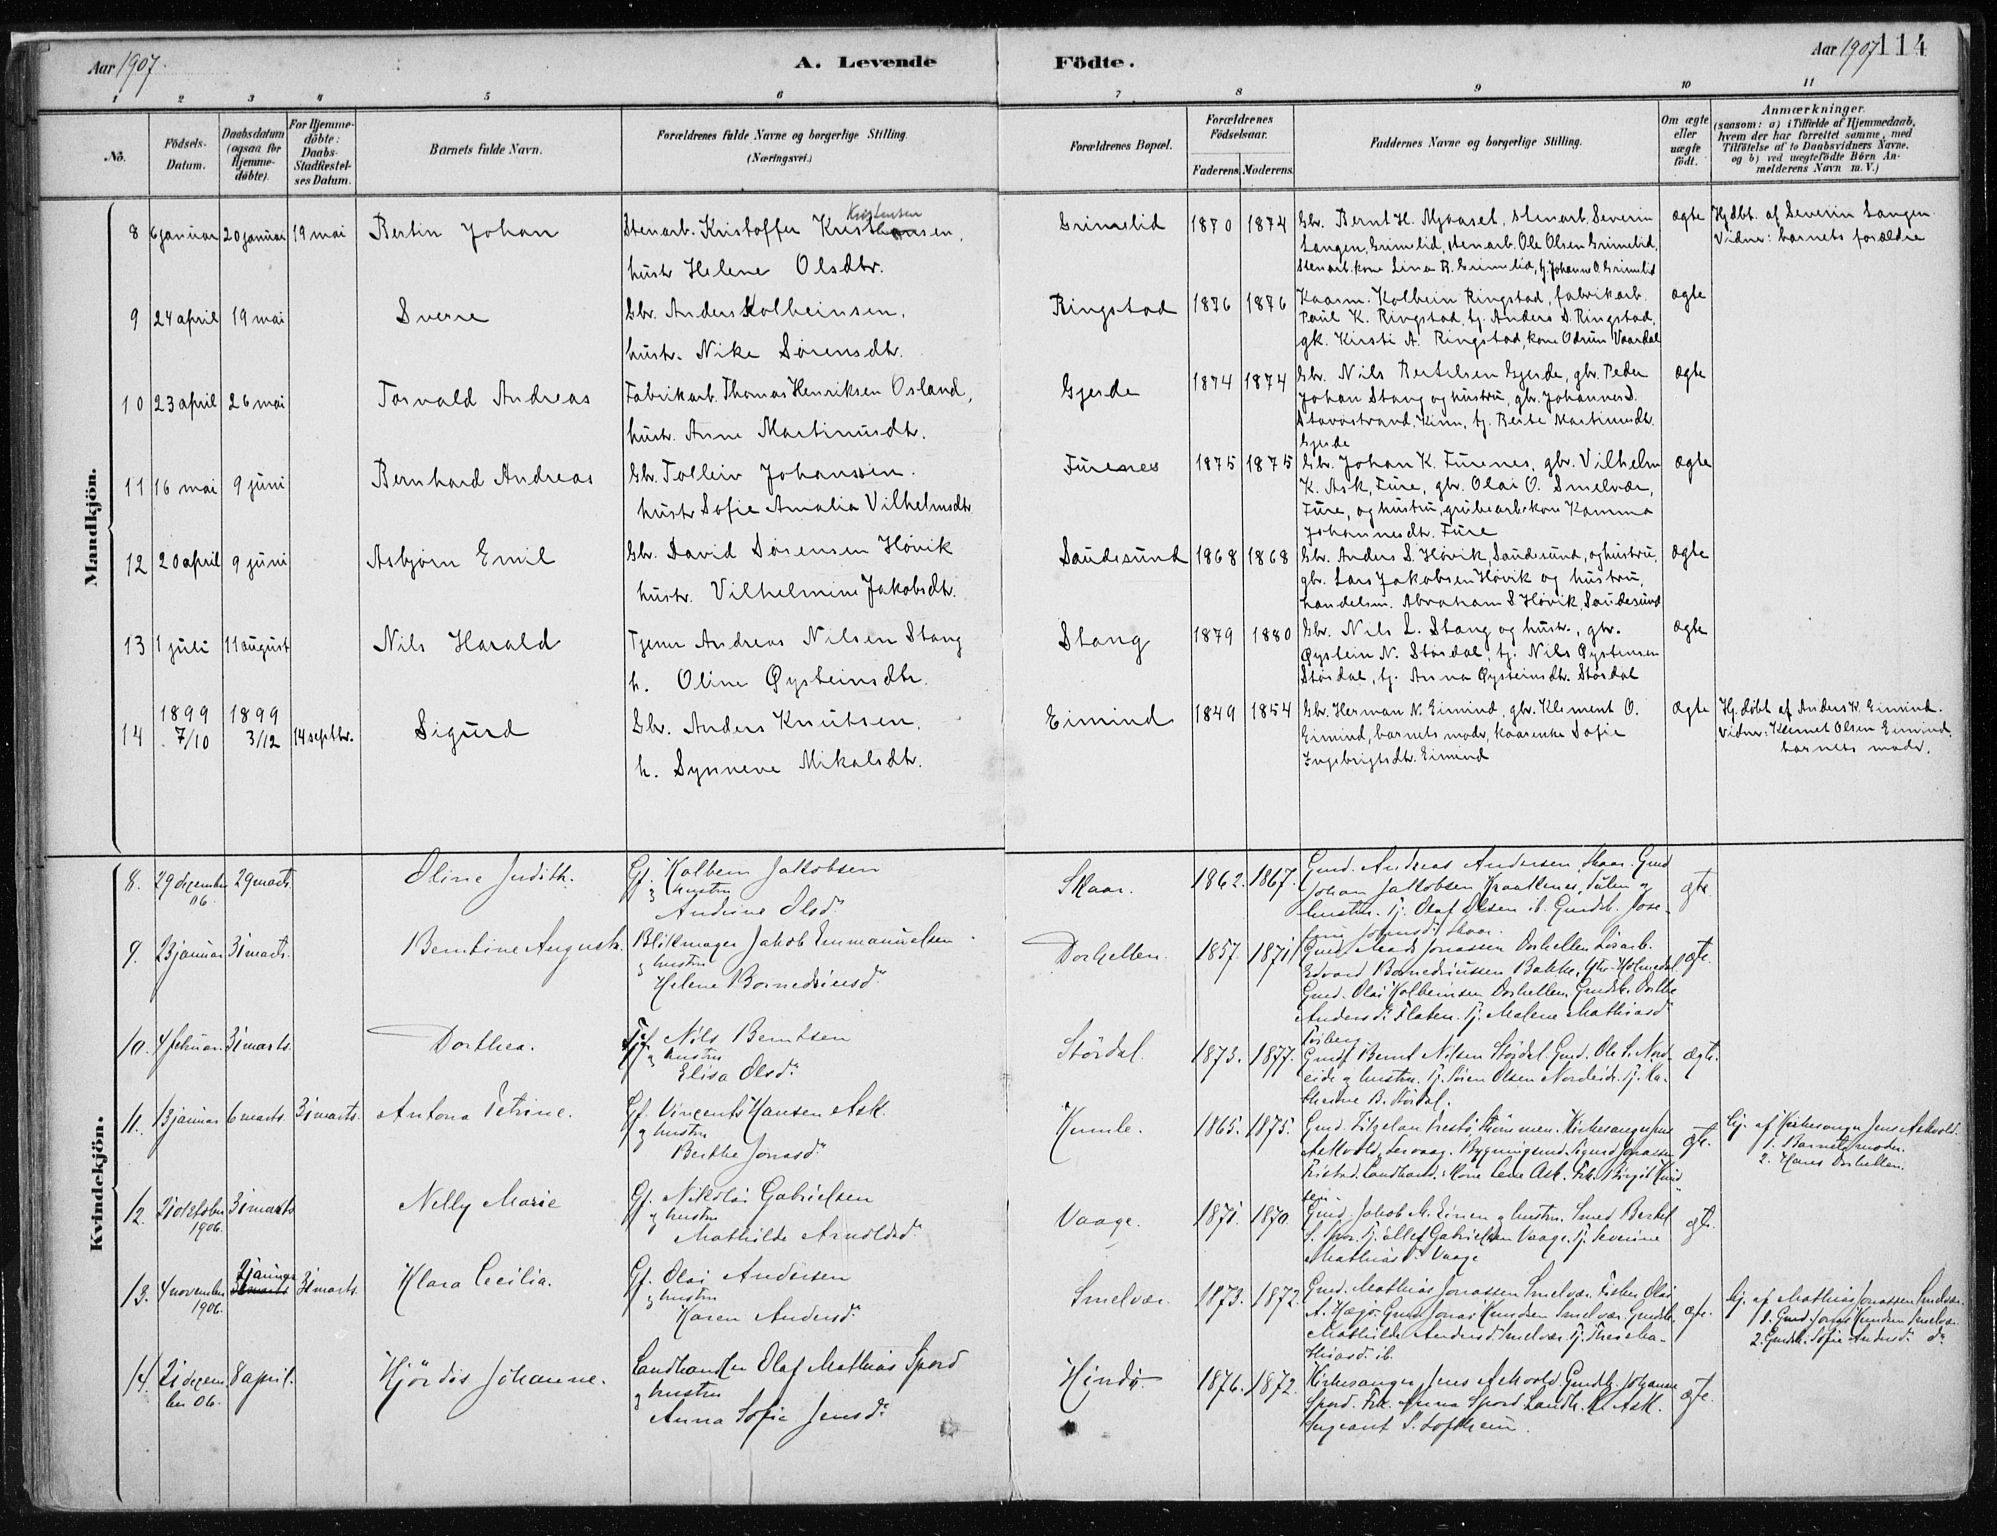 Aar 1907.
A. Levende Födte.
Aar 1907
114
1 2 3 4 5 6 7 8 9 10 11
No.
Födsels-Datum.
Daabsdatum (ogsaa for Hjemme-döbte).
For Hjemme-döbte: Daabs-Stadfæstel-ses Datum.
Barnets fulde Navn.
Forældrenes fulde Navne og borgerlige Stilling.
(Næringsvei.)
Forældrenes Bopæl.
Forældrenes Födselsaar.
Faderens. Moderens.
Faddernes Navne og borgerlige Stilling.
Om ægte eller uægte födt.
Anmærkninger.
(saasom: a) i Tilfælde af Hjemmedaab, hvem der har forrettet samme, med Tilföielse af to Daabsvidners Navne, og b) ved uægtefödte Börn An-melderens Navn m. V.)
Mandkjön.
8 6 januar 20 januar 19 mai Bertin Johan
Stenarb. Kristoffer Kristensen,
hustr Helene Olsdtr.
Grimelid 1870 1874
Gbr. Bernt H. Myraset, stenarb. Severin
Langen, Grimelid, stenarb. Ole Olsen Grimelid,
Stenarb.kone Lina R. Grimelid, tj. Johanne O. Grimelid
ægte
Hj.dbt. af Severin Langen.
Vidner: barnets forældre
9 24 april 19 mai Sverre
Gbr. Anders Kolbeinsen,
hustr. Nike Sørensdtr.
Ringstad 1876 1876
Kaarm. Kolbein Ringstad, fabrikarb.
Paul K. Ringstad, tj. Anders S. Ringstad,
gk. Kirsti A. Ringstad, kone Odrun Vaardal
ægte
10 23 april 26 mai Torvald Andreas
Fabrikarb. Thomas Henriksen Osland,
hustr. Anne Martinusdtr.
Gjerde 1874 1874
Gbr. Nils Bertelsen Gjerde, gbr. Peder
Johan Stang og hustru, gbr. Johannes J.
Stavøstrand, Kinn, tj. Berte Martinusdtr.
Gjerde
ægte
11 16 mai 9 juni Bernhard Andreas
Gbr. Tolleiv Johanssen.
hustr Sofie Amalia Vilhelmsdtr
Furenes 1875 1875
Gbr. Johan K. Furenes, gbr. Vilhelm
K. Ask, Fure, gbr. Olai O. Smelvær,
Fure, og hustru, grubearb.kone Kamma
Johannesdtr. Fure
ægte
12 20 april 9 juni Asbjørn Emil
Gbr. David Sørensen Høvik
hustr. Vilhelmine Jakobsdtr.
Saudesund 1868 1868
Gbr. Anders S. Høvik, Saudesund, og hustru,
gbr. Lars Jakobsen Høvik og hustru,
handelsm. Abraham S. Høvik, Saudesund
ægte
13 1 juli 11 august Nils Harald
Tjener Andreas Nilsen Stang
h. Oline Øysteinsdtr.
Stang 1879 1880
Gbr. Nils L. Stang og hustr., gbr.
Øystein N. Størdal, tj. Nils Øystensen
Størdal, tj. Anna Øysteinsdtr. Størdal
ægte
14 1899 7/10 1899 3/12 14 septbr. Sigurd
Gbr. Anders Knutsen,
h. Synneve Mikalsdtr.
Eimind 1849 1854
Gbr. Herman N. Eimind, gbr. Klement O.
Eimind, barnets moder, kaarenke Sofie
Ingebrigtsdtr. Eimind
ægte
Hj.døbt af Anders K. Eimind.
Vidner: Klemet Olsen Eimind,
barnets moder.
Kvindekjön.
8. 29 december 06. 29 marts. Oline Judith.
Gf. Kolbein Jakobsen
og hustru
Andrine Olsd.
Skaar. 1862. 1867.
Gmd. Andreas Andersen Skaar. Gmd
Johan Jakobsen Kraakenes,
hustru. Tj. Olaf Olsen ib. Gmdsk. Jose-
Skaar.
ægte.
9. 23 januar 31 marts. Berntine August.
Blikmager Jakob Emmanuelsen
og hustru
Helene
Dorhellen. 1857. 1871
Gmd. Mads Jonassen Dorhellen
Edvard Bakke, Holmedal
Gmd. Olai Kolbeinsen Dorhellen. Gmdsk. Dorthe
Andersd. Flaten. Tj. Malene Mathiasd
ægte.
10. 4 februar 31 marts. Dorthea.
Nils Berntsen
og hustru
Elisa Olsd.
Stördal. 1873. 1877.
Gmd. Bernt Nilsen Stördal. Gmd. Ole S. Nord-
eide og hustru. Tj. Sören Olsen Nordeide. Tj. Ka-
B. Stördal.
ægte.
11. 13 januar 6 marts. 31 marts. Antona Petrine.
Gf. Vincents Hansen Ask.
og hustru
Berthe Jonasd.
Humle. 1865. 1875.
Kirkesanger Jens
Askvold, Sigurd Jonassen
Landhand. Kone Lene Ask. Frk. Birgit Knud
sen.
ægte.
Hj. af Kirkesanger Jens Askvold.
1. Barnets moder.
2. Hans Dorhellen.
12. 21 oktober 1906. 31 marts Nelly Marie
Gf. Nikolai Gabrielsen
og hustru
Mathilde Arnoldsd.
Vaage. 1871. 1870.
Gmd. Jakob M. Einen og hustru. Smed Bertel
Tj. Gabrielsen Vaage. Tj. Severine
Mathiasd. Vaage
ægte.
13. 4 november 1906. 2 januar 31 marts. Klara Cecilia.
Gf. Olai Andersen
og hustru
Karen Andersd.
Smelvær. 1873. 1872.
Gmd. Mathias Jonassen Smelvær. Fisker Olai
A. Gmd Jonas Knudsen Smelvær. Gmdsk.
Mathilde Andersd. Smelvær. Tj.
ib.
ægte.
Hj. af Mathias Jonassen Smelvær.
1. Gmd. Jonas Knudsen Smelvær.
2. Gmdsk. Sofie Andersd. do
14. 21 decem ber 06. 8 april. Hjördis Johanne.
Landhandler Olaf Mathias Spord
og hustru
Anna Sofie Jensd.
Hindö. 1876. 1872.
Kirkesanger Jens Askvold. Gmdsk. Johanne
Spord. Frk. Anna Spord. Landh. Ask.
Sergeant S. Loftheim.
ægte.